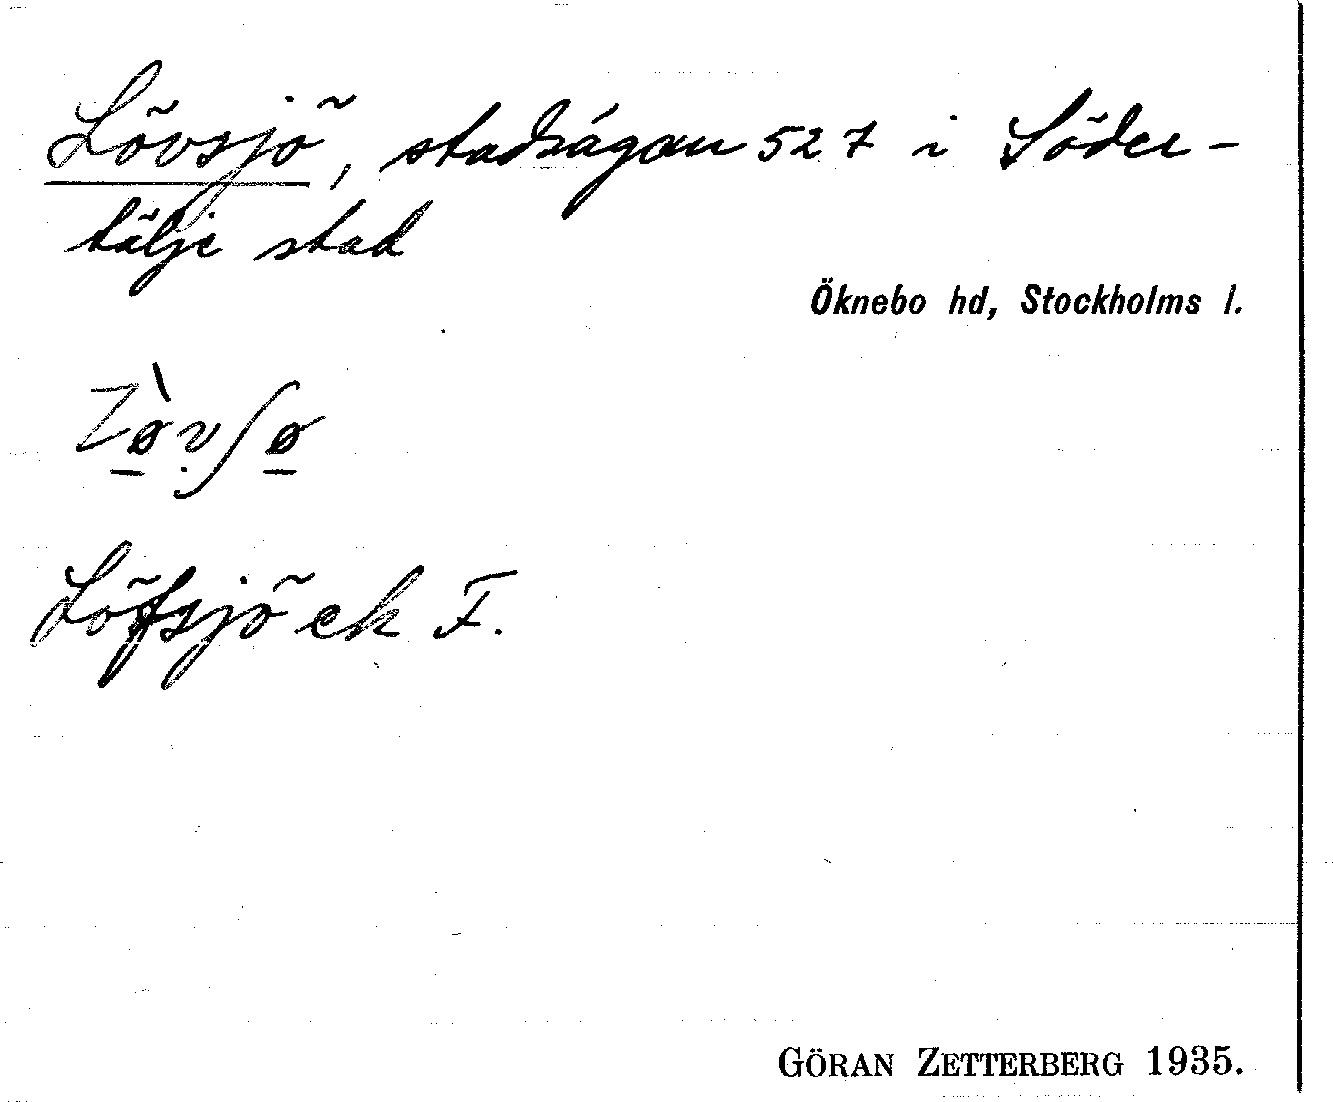 Lövsjö, stadsägan 527 i Söder-
tälje stad
Öknebo hd, Stockholms l.
Lø̱̀vʃø̱
Löfsjö ek F.
GÖRAN ZETTERBERG 1935.